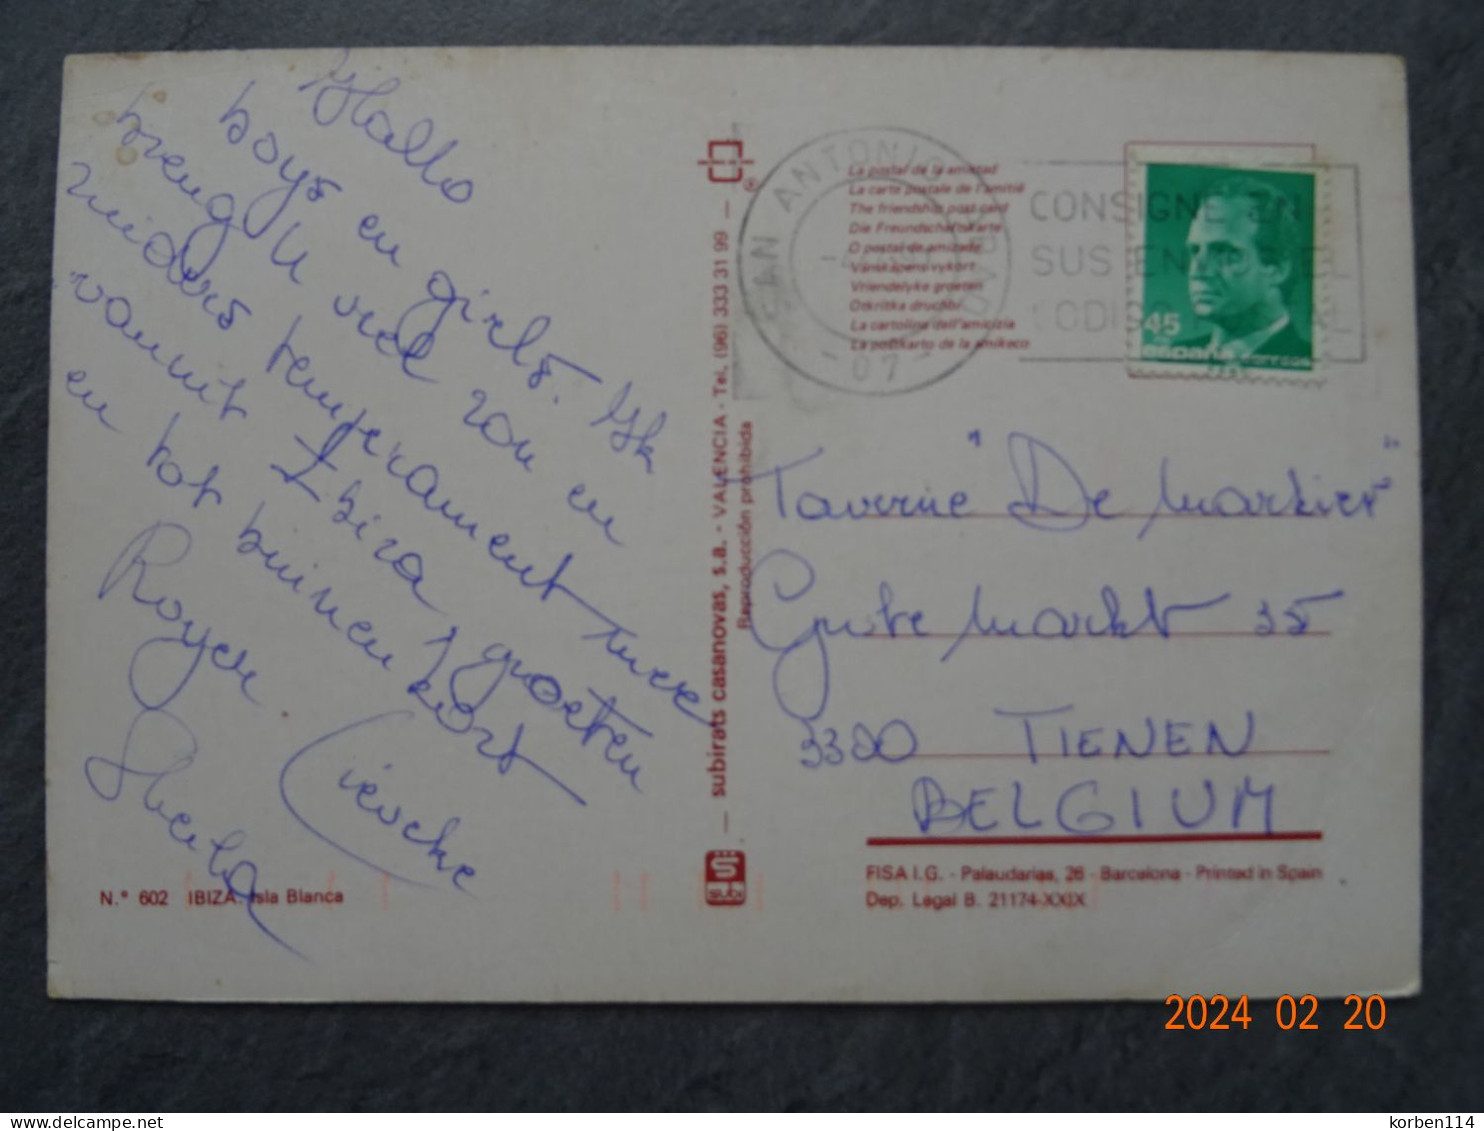 Hallo
boys en girls. Ik
breng U veel zon en
zuiders temperament mee
vanuit Ibiza, groeten
en tot binnen kort
Royen Lieveke
Sheila
N.° 602 IBIZA. Isla Blanca
subirats casanovas, s.a. - VALENCIA - Tel. (96) 333 31 99
Reproducción prohibida
®
La postal de la amistad
La carte postale de l'amitié
The friendship post card
Die Freundschaftskarte
O postal de amizade
Vänskapens vykort
Vriendelyke groeten
Otkritka druchbi
La cartolina dell'amicizia
La poŝtkarto de la amikeco
SAN ANTONIO ABAD
- 07 -
CONSIGNE EN
SUS EN EL
CODIGO POSTAL
45
ESPAÑA CORREOS
Taverne "De Markies"
Grote Markt 35
3300 TIENEN
BELGIUM
FISA I.G. - Palaudarias, 26 - Barcelona - Printed in Spain
Dep. Legal B. 21174-XXIX
2024 02 20
delcampe.net
korben114